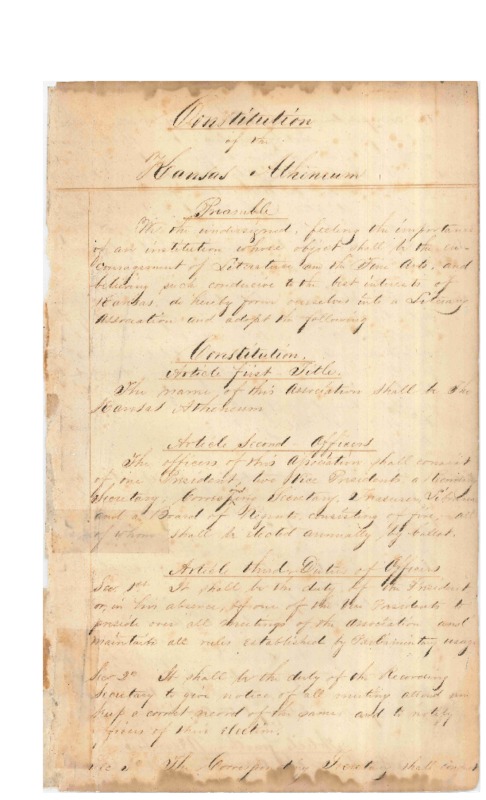 Constitution
of the
Kansas Atheneum.
Preamble
We the undersigned, feeling the importance
of an institution whose object shall be the en-
couragement of Literature and the Fine Arts, and
believing such conducive to the best interests of
Kansas, do hereby form ourselves into a Literary
Association and adopt the following
Constitution.
Article first Title.
The name of this Association shall be The
Kansas Atheneum
Article Second - Officers
The officers of this Association shall consist
of one President, two Vice Presidents, a
Secretary, Secretary, Treasurer,
and a Board of consisting of five, all
of whom shall be elected annually, by ballot.
Article Duties of Officers
Sec. 1st It shall be the duty of the President
or, in his absence, of one of the Vice Presidents to
preside over all meetings of the Association and
maintain all rules established by Parliamentary usage
Sec 2d It shall be the duty of the Recording
Secretary to give notice of all meetings
keep a correct record of the same and to notify
officers of their election.
The Secretary shall